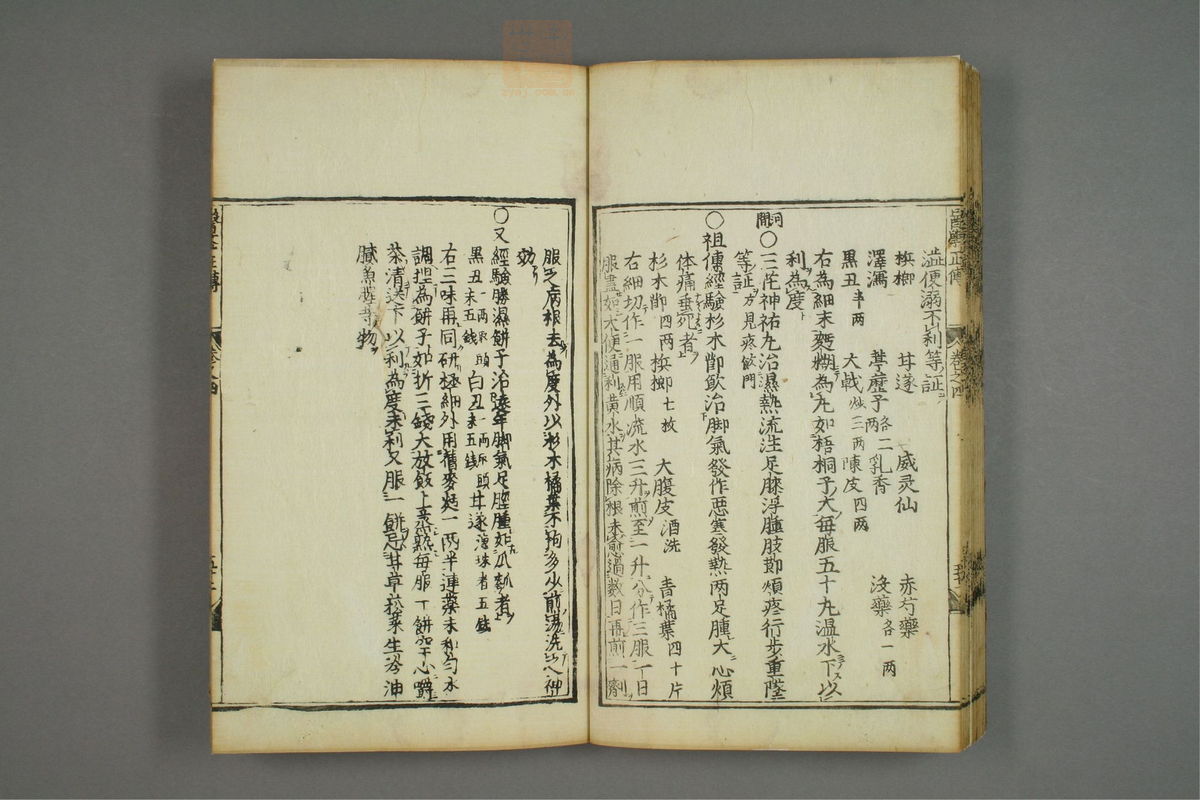 溢便溺不利等証
檳榔 甘遂 威灵仙 赤芍藥
澤瀉 葶藶子各二両 乳香 沒藥各一両
黒丑半両 大戟炒三両 陳皮四両
右為細末麪糊為丸如梧桐子大毎服五十九温水下以
利為度
河間○三花神祐丸治濕熱流注足膝浮腫肢節煩疼行歩重墜
等証方見疼飲門
○祖傳經驗杉木節飲治脚氣發作悪寒發熱両足腫大心煩
体痛垂死者
杉木節四両 檳榔七枚 大腹皮酒洗 青橘葉四十片
右細切作一服用順流水三升煎至一升分作三服一日
服盡如大便通利黄水其病除根未愈過数日再煎一劑
服之病根去為度外以杉木橘葉不拘多少煎湯洗之神
効
○又經驗勝濕餅子治遠年脚氣足脛腫如瓜瓠者
黒丑一両取頭末五銭 白丑一両取頭末五銭 甘遂連珠者五銭
右三味再同研極細外用蕎麥麪一両半連藥末和勻水
調捏為餅子如折三錢大放飯上蒸熟毎服一餅空心嚼
茶清送下以利為度未利又服一餅忌甘草菘菜生冷油
膩魚等物